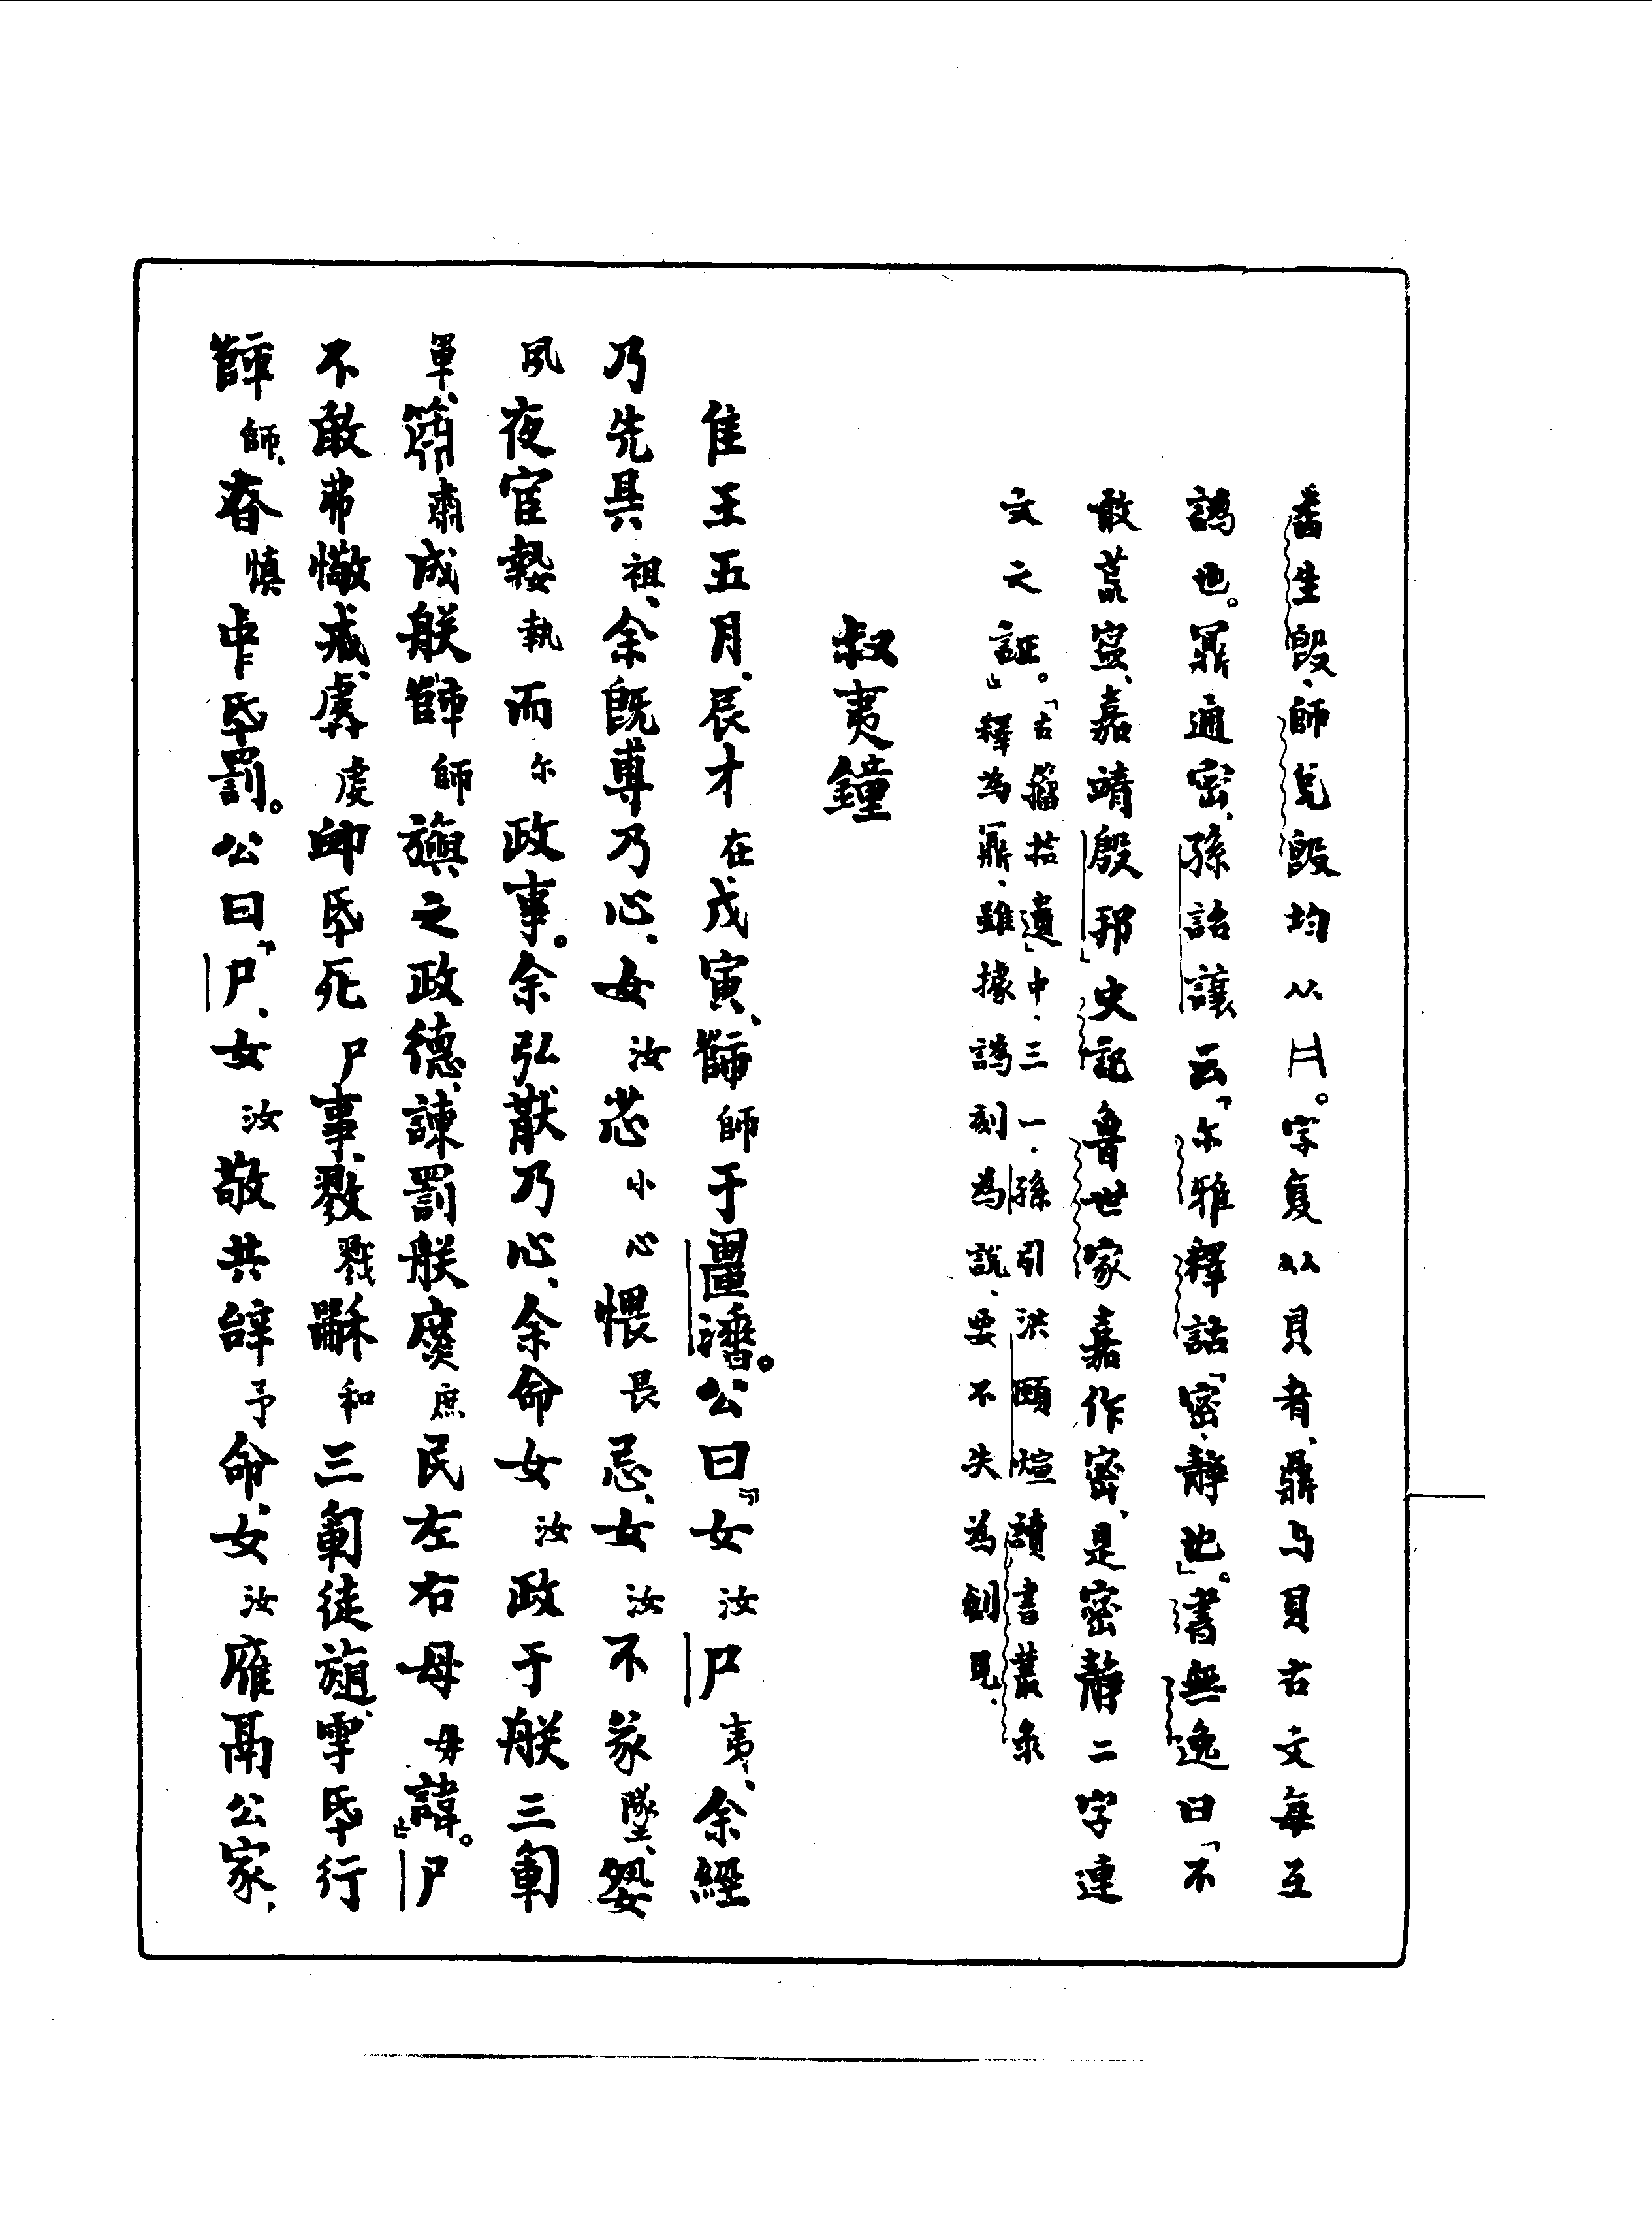 番生𣪘、師兌𣪘均从𠔼。字復从貝者、鼎与貝古文每互
譌也。鼏通密、孫詒讓云「尔雅釋詁「密、靜也」。書無逸曰「不
敢荒寍、嘉靖殷邦」史記魯世家嘉作密、是密靜二字連
文之証。」「古籀拾遺」中.三一.孫引洪頤煊讀書叢录
釋為鼏、雖據譌刻為說、要不失為創見.
叔夷鐘
隹王五月、辰才在戊寅、師于𤲞。公曰『女汝尸夷、余經
乃先且祖、余既尃乃心、女汝小心愄畏忌、女汝不㒸墜、
夙夜宦執而尔政事。余弘猒乃心、余命女汝政于朕三軍
軍、肅成朕師旟之政德、諫罰朕庶民左右毋諱。』尸
不敢弗憼戒、虔卹氒死尸事、戮龢和三軍徒旜、雩氒行
師、慎中氒罰。公曰『尸、女汝敬共辝予命、女汝雁鬲公家、